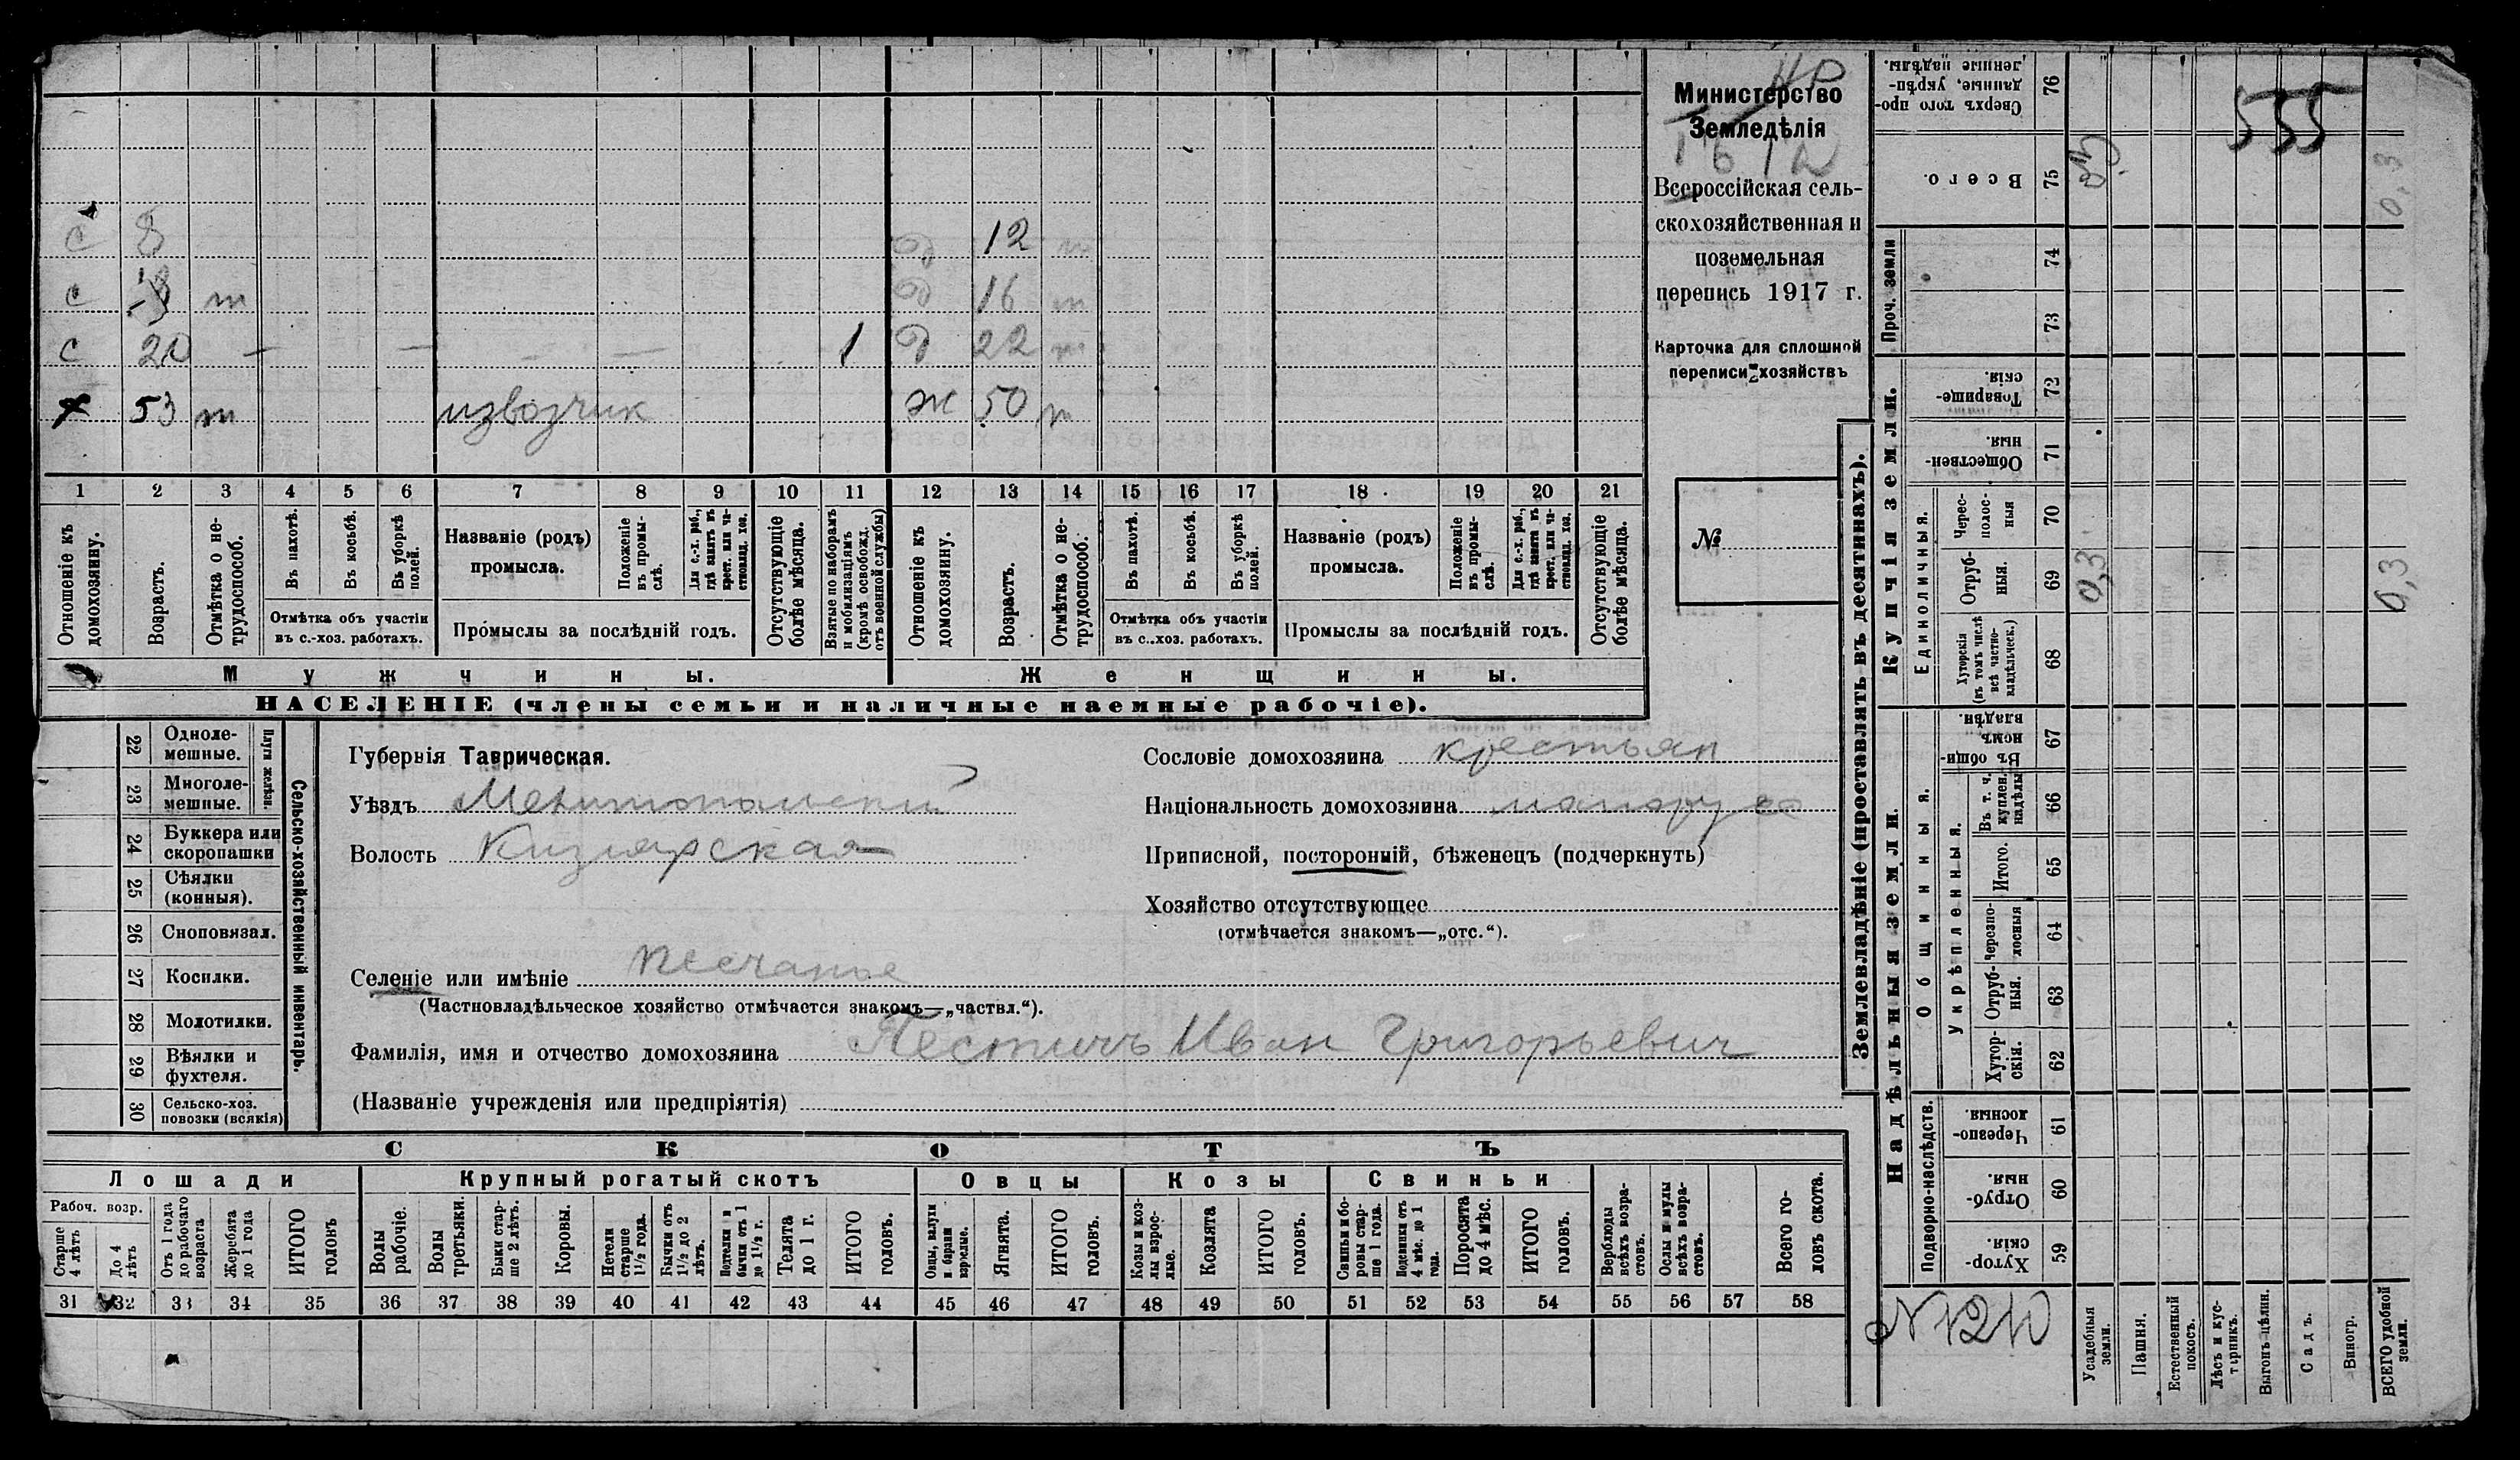 с 8 д 12 т
с 13 т д 16 т
с 20 — — — — 1 д 22 т
х 53 т извозчик ж 50 т
1 2 3 4 5 6 7 8 9 10 11 12 13 14 15 16 17 18 19 20 21
Отношеніе къ домохозяину.
Возрастъ.
Отмѣтка о не-
трудоспособ.
Въ пахотѣ.
Въ косьбѣ.
Въ уборкѣ полей.
Отмѣтка объ участіи
въ с.-хоз. работахъ.
Названіе (родъ)
промысла.
Положеніе
въ промы-
слѣ.
Для с.-х. раб.,
гдѣ занятъ въ
крест. или ча-
стновлад. хоз.
Промыслы за послѣдній годъ.
Отсутствующіе
болѣе мѣсяца.
Взятые по наборамъ
и мобилизаціямъ
(кромѣ освобожд.
отъ военной службы)
Отношеніе къ
домохозяину.
Возрастъ.
Отмѣтка о не-
трудоспособ.
Въ пахотѣ.
Въ косьбѣ.
Въ уборкѣ
полей.
Отмѣтка объ участіи
въ с.-хоз. работахъ.
Названіе (родъ)
промысла.
Положеніе
въ промы-
слѣ.
Для с.-х. раб.,
гдѣ занята въ
крест. или ча-
стновлад. хоз.
Промыслы за послѣдній годъ.
Отсутствующіе
болѣе мѣсяца.
Мужчины.
Женщины.
НАСЕЛЕНІЕ (члены семьи и наличные наемные рабочіе).
Министерство
Земледѣлія
Всероссійская сель-
скохозяйственная и
поземельная
перепись 1917 г.
Карточка для сплошной
переписи хозяйствъ
№
22 Одноле-
мешные.
23 Многоле-
мешные.
Плуги желѣзн.
24 Буккера или
скоропашки
25 Сѣялки
(конныя).
26 Сноповязал.
27 Косилки.
28 Молотилки.
29 Вѣялки и
фухтеля.
30 Сельско-хоз.
повозки (всякія)
Сельско-хозяйственный инвентарь.
Губернія Таврическая.
Уѣздъ Мелитопольский
Волость Кизиярская
Селеніе или имѣніе Песчаное
(Частновладѣльческое хозяйство отмѣчается знакомъ—„частвл.“).
Фамилія, имя и отчество домохозяина Пестичъ Иван Григорьевич
(Названіе учрежденія или предпріятія)
Сословіе домохозяина крестьян
Національность домохозяина малорус
Приписной, посторонній, бѣженецъ (подчеркнуть)
Хозяйство отсутствующее
(отмѣчается знакомъ—„отс.“).
СКОТЪ
Лошади
Рабоч. возр.
Старше
4 лѣтъ
До 4
лѣтъ
Отъ 1 года
до рабочаго
возраста
Жеребята
до 1 года
ИТОГО
головъ
Крупный рогатый скотъ
Волы
рабочіе.
Волы
третьяки.
Быки стар-
ше 2 лѣтъ.
Коровы.
Нетели
старше
1½ года.
Бычки отъ
1½ до 2
лѣтъ.
Подтелки и
бычки отъ 1
до 1½ г.
Телята
до 1 г.
ИТОГО
головъ.
Овцы
Овцы, валухи
и бараны
взрослые.
Ягнята.
ИТОГО
головъ.
Козы
Козы и коз-
лы взрос-
лые.
Козлята
ИТОГО
головъ.
Свиньи
Свиньи и бо-
ровы стар-
ше 1 года.
Подсвинки отъ
4 мѣс. до 1
года.
Поросята
до 4 мѣс.
ИТОГО
головъ.
Верблюды
всѣхъ возра-
стовъ.
Ослы и мулы
всѣхъ возра-
стовъ.
Всего го-
ловъ скота.
31 32 33 34 35 36 37 38 39 40 41 42 43 44 45 46 47 48 49 50 51 52 53 54 55 56 57 58
Землевладѣніе (проставлять въ десятинахъ).
Сверхъ того про-
данные, укрѣп-
ленные надѣлы.
76
555
Всего.
75
0,3
0,3
Проч. земли
74
73
Купчія земли.
Товарище-
скія.
72
Обществен-
ныя.
71
Единоличныя.
Черес-
полос-
ныя
70
Отруб-
ныя.
69
0,3
0,3
Хуторскія
(въ томъ числѣ
всѣ частно-
владѣльческ.)
68
Надѣльныя земли.
Общинныя.
Въ общин-
номъ
владѣн.
67
Укрѣпленныя.
Въ т. ч.
куплен.
надѣлы
66
Итого.
65
Черезпо-
лосныя
64
Отруб-
ныя.
63
Хутор-
скія.
62
Подворно-наслѣдств.
Черезпо-
лосныя.
61
Отруб-
ныя.
60
Хутор-
скія.
59
№ 1210
Усадебныя
земли.
Пашня.
Естественный
покосъ.
Лѣсъ и кус-
тарникъ.
Выгонъ цѣлин.
Садъ.
Виногр.
ВСЕГО удобной
земли.